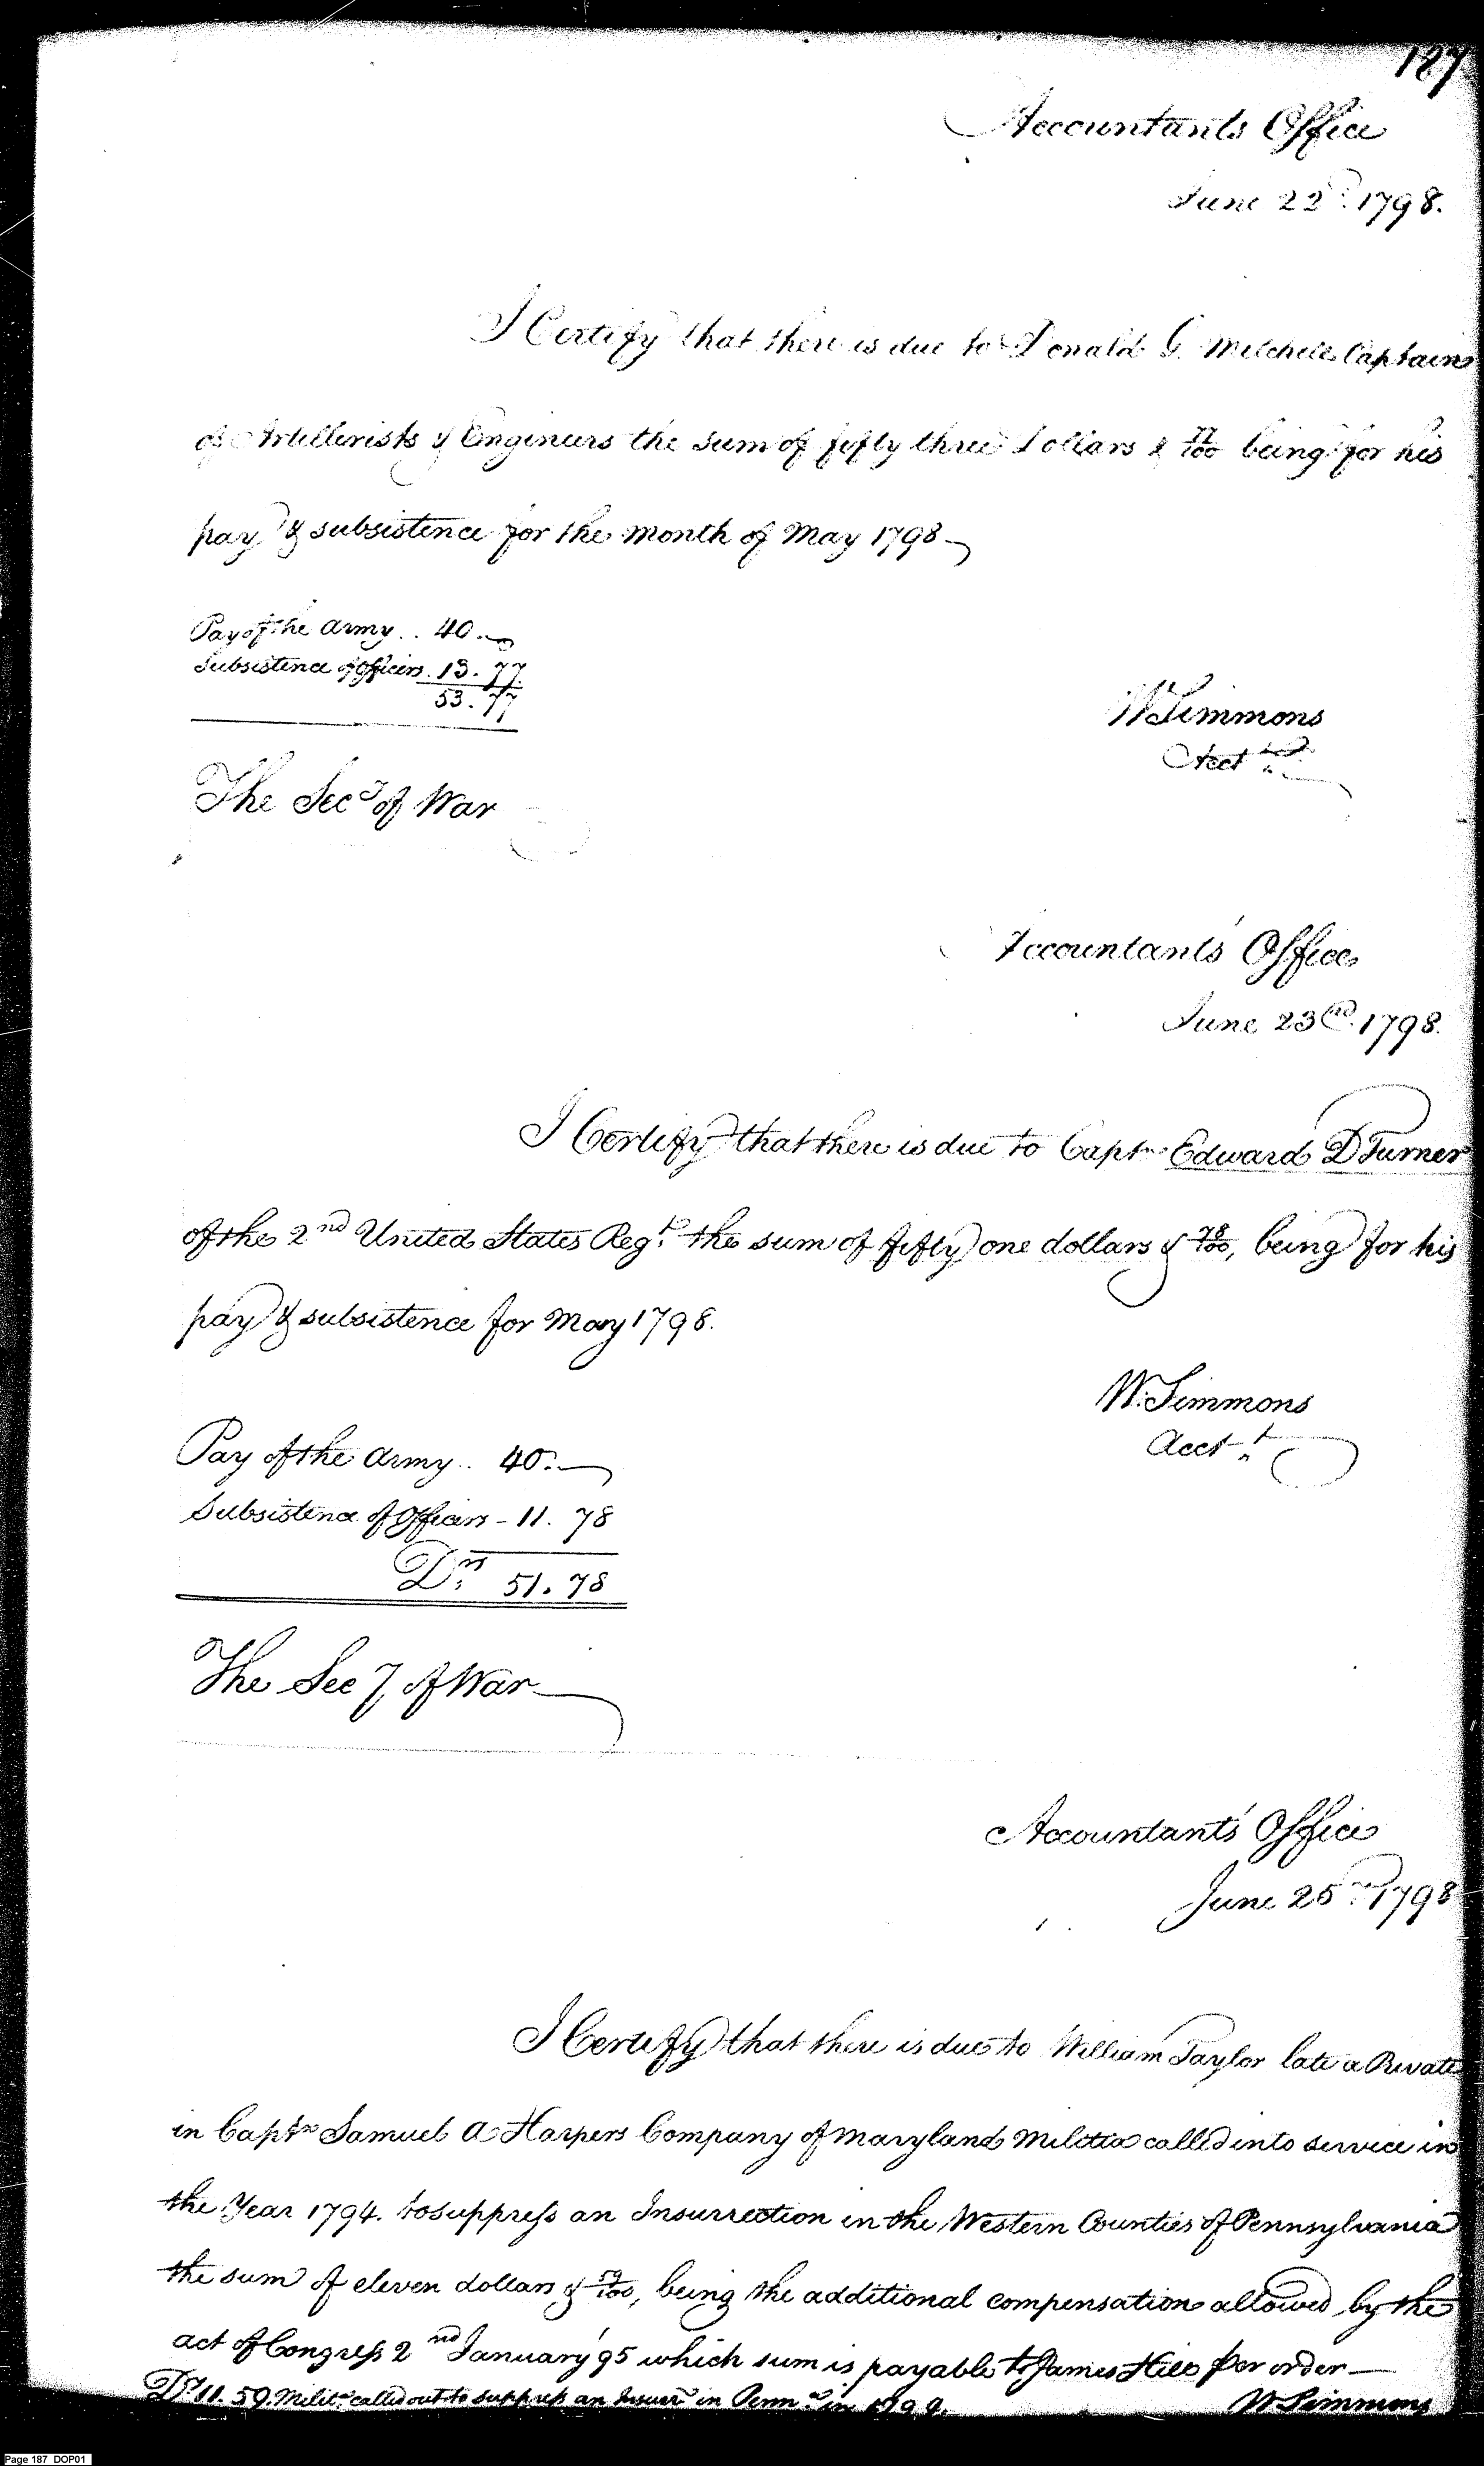 187
Accountants Office
June 22d. 1798.
I Certify that there is due to Donald G. Mitchell Captain
of Artillerists & Engineers the sum of fifty three Dollars & 77/100 being for his
pay & subsistence for the month of May 1798
Pay of the Army .. 40.
Subsistence of Officers. 13. 77.
53. 77
W Simmons
Acct
The Secy of War
Accountants' Office
June 23rd. 1798.
I Certify that there is due to Captn Edward D Turner
of the 2nd United States Regt. the sum of fifty one dollars & 78/100, being for his
pay & subsistence for May 1798.
W. Simmons
Acct.
Pay of the Army .. 40.
Subsistence of Officers - 11. 78
Drs 51. 78
The Secy of War
Accountants' Office
June 25 1798
I Certify that there is due to William Taylor late a Private
in Captn Samuel A Harpers Company of Maryland Militia called into service in
the Year 1794. to suppress an Insurrection in the Western Counties of Pennsylvania
the sum of eleven dollars & 59/100, being the additional compensation allowed by the
act of Congress 2nd January '95 which sum is payable to James Hill per order
Drs 11. 59. Milita. called out to suppress an Insurrn in Penna. in 1794.
W Simmons
Page 187 DOP01